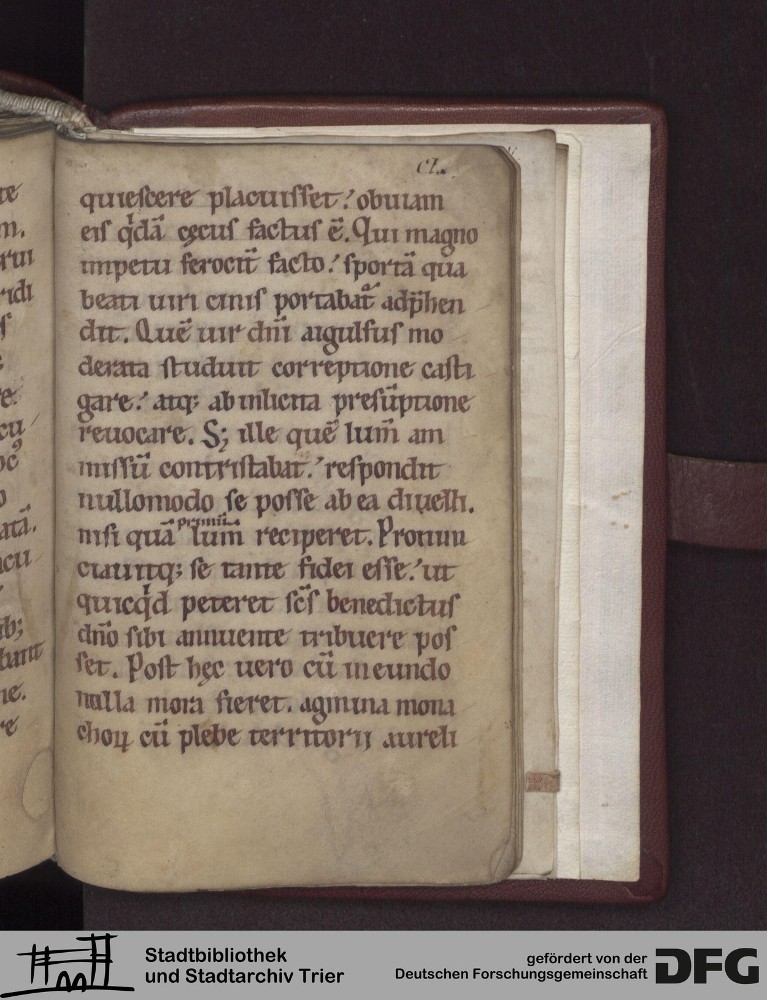 CL
quiescere placuisset. obuiam
eis q̇dā cęcus factus ē. Qui magno
impetu ferocit̄ facto. sportā qua
beati uiri cinis portabat̄ adp̄hen
dit. Quē uir dnī aigulfus mo
derata studuit correptione casti
gare. atq; ab inlicita presūptione
reuocare. S; ille quē lum̄ am
missū contristabat. respondit
nullomodo se posse ab ea diuelli.
nisi quā primit lum̄ reciperet. Pronun
ciauitq; se tante fidei esse. ut
quicq̇d peteret sc̄s benedictus
dn̄o sibi annuente tribuere pos
set. Post hęc uero cū in eundo
nulla mora fieret. agmina mona
choꝝ cū plebe territorii aureli
te
m.
rui
ridi
s
re.
cu
oc
o
atā.
acu
ib;
bant
ne.
re
Stadtbibliothek
und Stadtarchiv Trier
gefördert von der
Deutschen Forschungsgemeinschaft
DFG